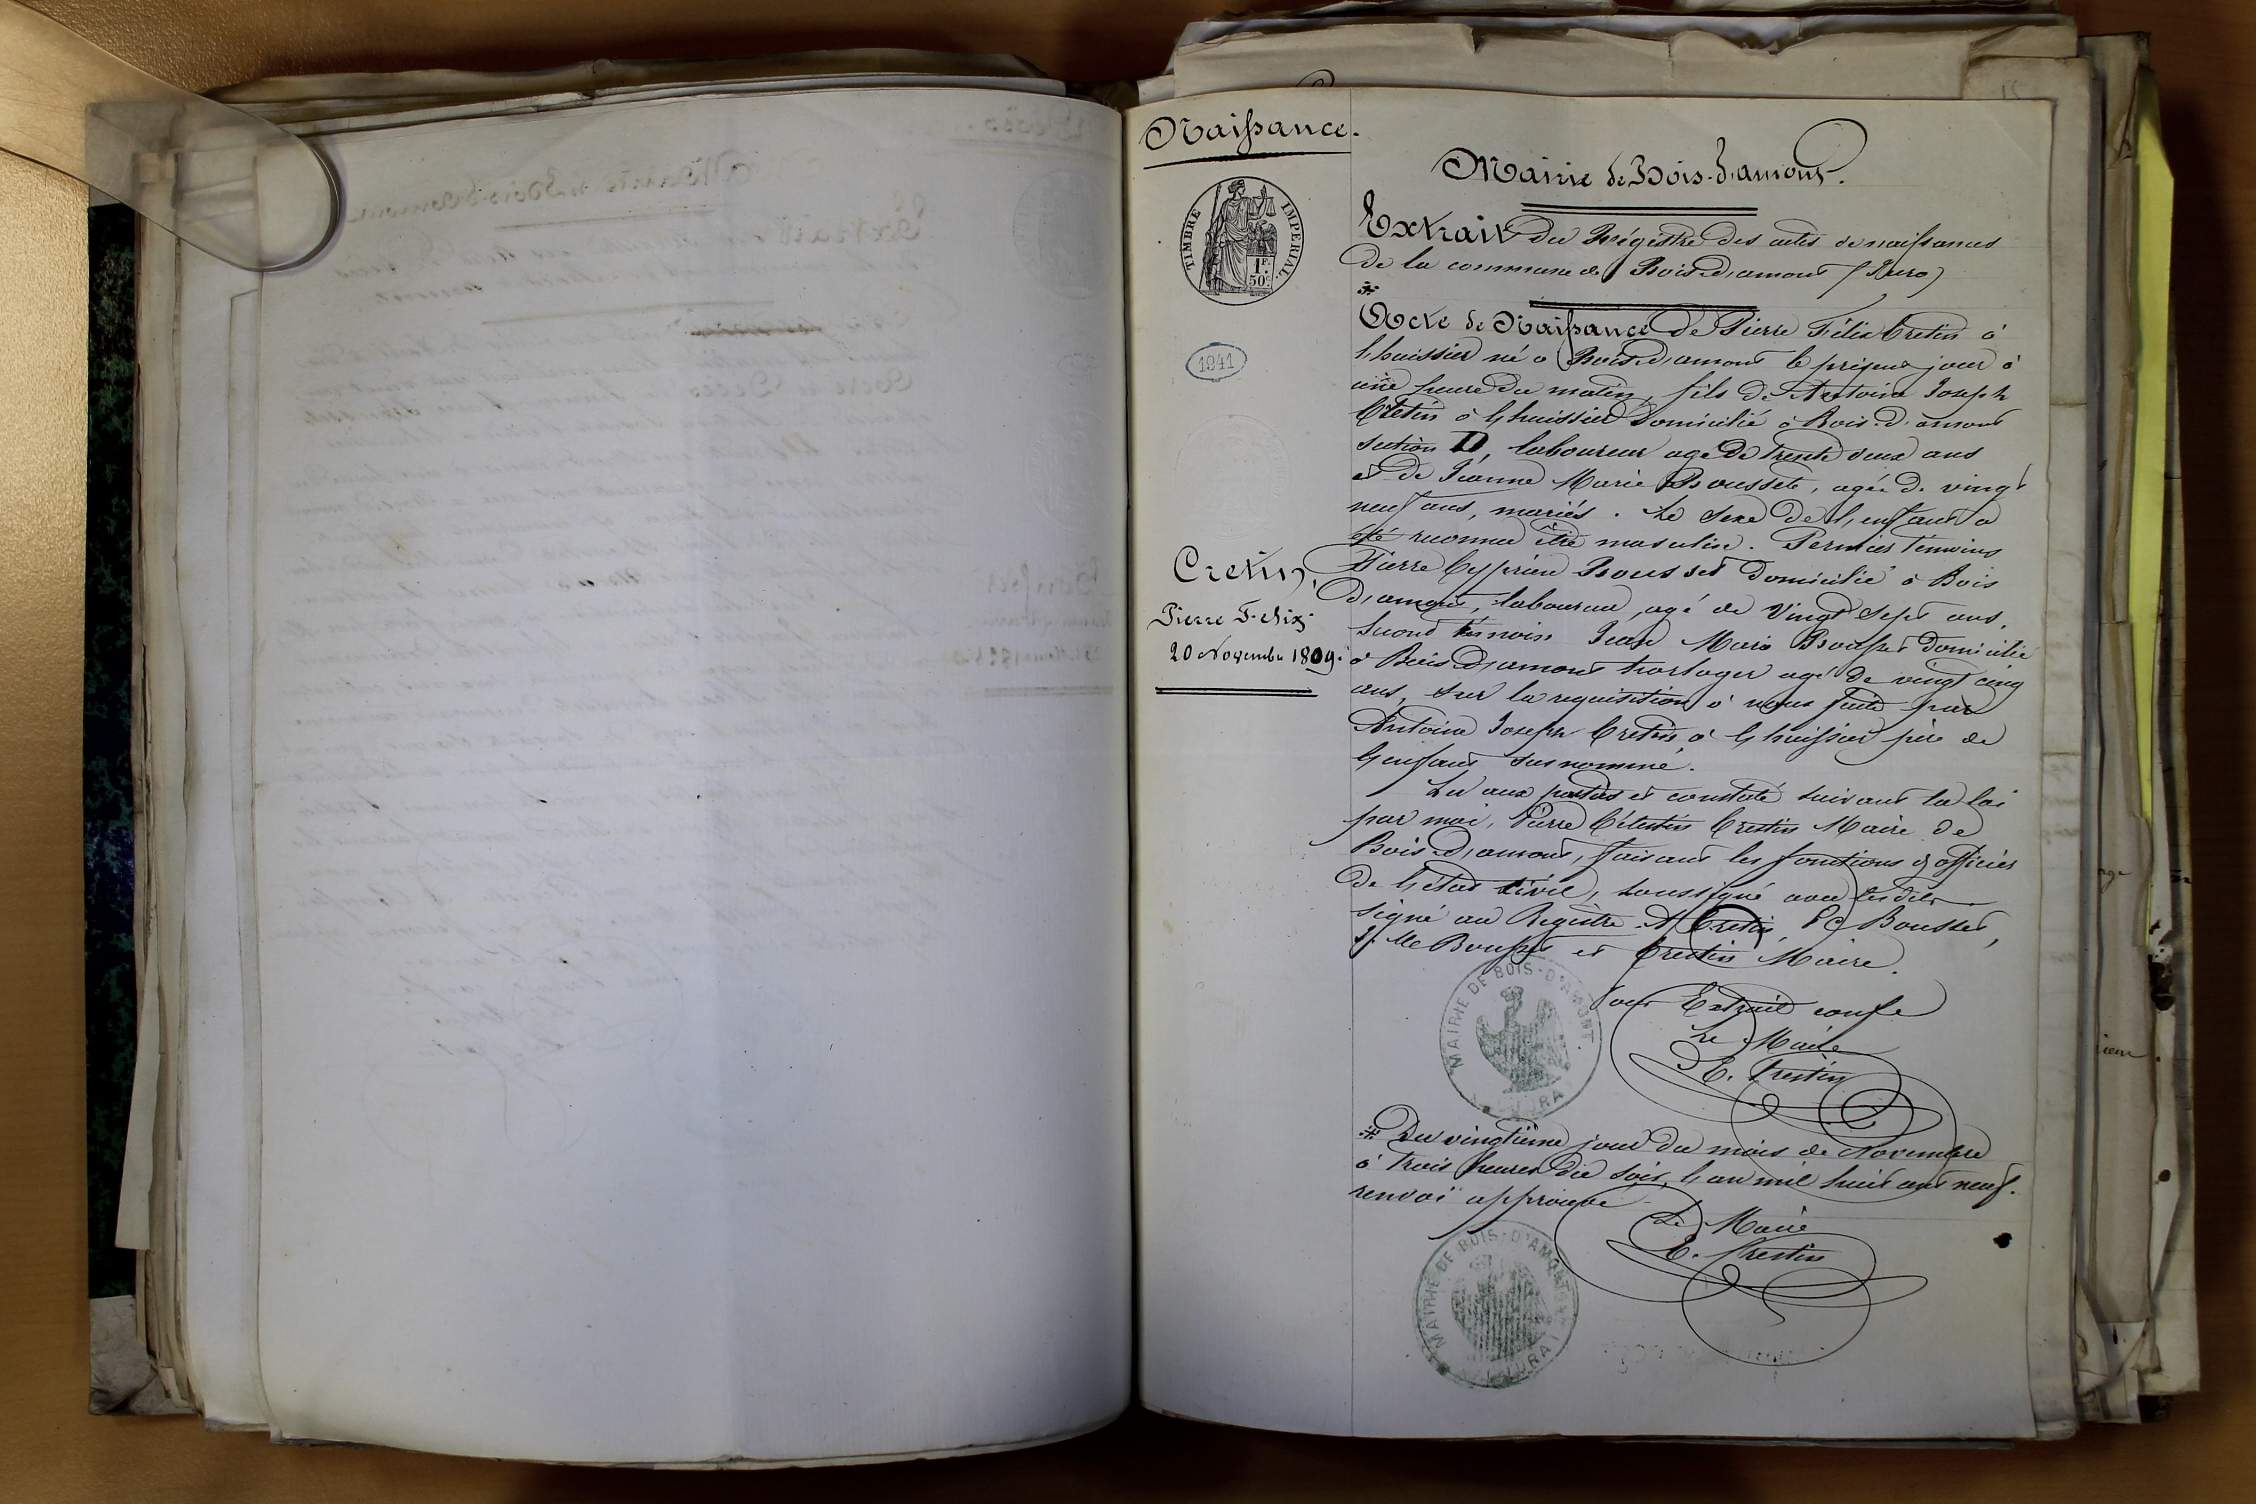 Naissance.
TIMBRE IMPERIAL.
1F.
50c.
1941
Cretin,
Pierre Felix
20 Novembre 1809.
Mairie de Bois-d'amont.
Extrait du Régistre des actes de naissances
de la commune de Bois-d'amont (Jura)
Acte de Naissance de Pierre Félix Cretin à
l'huissier né à Bois-d'amont le présent jour à
une heure du matin, fils de Antoine Joseph
Cretin à l'huissier domicilié à Bois-d'amont
section D, laboureur agé de trente deux ans
et de Jeanne Marie Boussete, agée de vingt
neuf ans, mariés. Le sexe de l'enfant a
été reconnu être masculin. Permiers témoins
Pierre Cyprien Bousset domicilié à Bois
d'amont, laboureur, agé de vingt sept ans.
Second témoin Jean Marie Bousset domicilié
à Bois d'amont horloger agé de vingt cinq
ans, sur la requisition à nous faite par
Antoine Joseph Cretin à l'huissier père de
l'enfant susnommé.
Lu aux parties et constaté suivant la loi
par moi, Pierre Célestin Crestin Maire de
Bois-d'amont, faisant les fonctions d'officier
de l'état civil, soussigné avec les dits
signé au Régistre A Cretin, PC Bousset,
J. Me Bousset et Crestin Maire.
Pour Extrait confe
Le Maire
E. Crestin
MAIRIE DE BOIS-D'AMONT.
JURA
* Du vingtième jour du mois de Novembre
à trois heures du soir, l'an mil huit cent neuf.
renvoi approuvé
Le Maire
E. Crestin
MAIRIE DE BOIS-D'AMONT
(JURA)